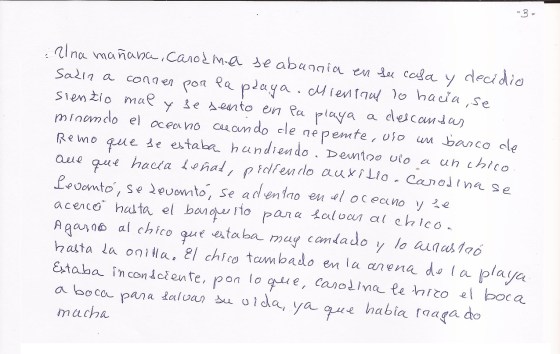 -3-
Una mañana, Carolina se aburria en su casa y decidio
Salir a correr por la playa. Mientras lo hacia, se
sientio mal y se sento en la playa a descansar
mirando el oceano cuando de repente, vio un barco de
Remo que se estaba hundiendo. Dentro vio a un chico
que que hacia señas, pidiendo auxilio. Carolina se
Levantó, se levantó, se adentro en el oceano y se
acercó hasta el barquito para salvar al chico.
Agarró al chico que estaba muy cansado y lo arrastró
hasta la orilla. El chico tumbado en la arena de la playa
Estaba inconsciente, por lo que, carolina le hizo el boca
a boca para salvar su vida, ya que había tragado
mucha